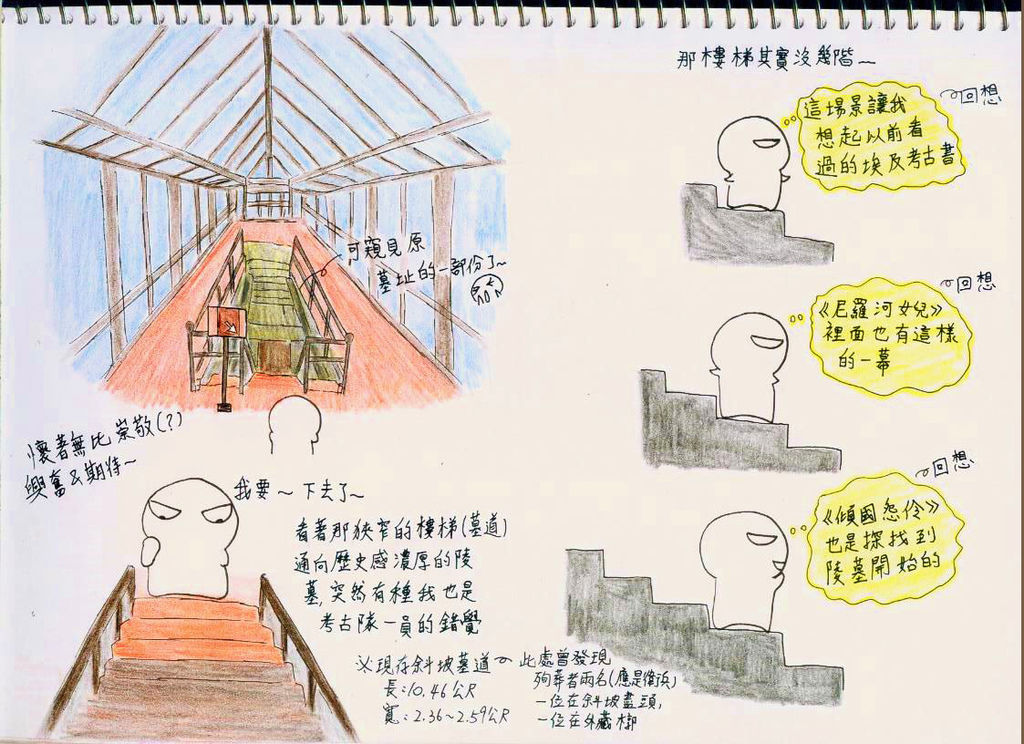 可窺見原
墓址的一部份了~
懷著無比崇敬(?)
興奮&期待~
我要~下去了~
看著那狹窄的樓梯(墓道)
通向歷史感濃厚的陵
墓,突然有種我也是
考古隊一員的錯覺
※現存斜坡墓道~此處曾發現
長:10.46公尺
寬:2.36~2.59公尺
殉葬者兩名(應是衛兵)
一位在斜坡盡頭,
一位在外藏槨
那樓梯其實沒幾階~
回想
這場景讓我
想起以前看
過的埃及考古書
回想
《尼羅河女兒》
裡面也有這樣
的一幕
回想
《傾國怨伶》
也是探找到
陵墓開始的